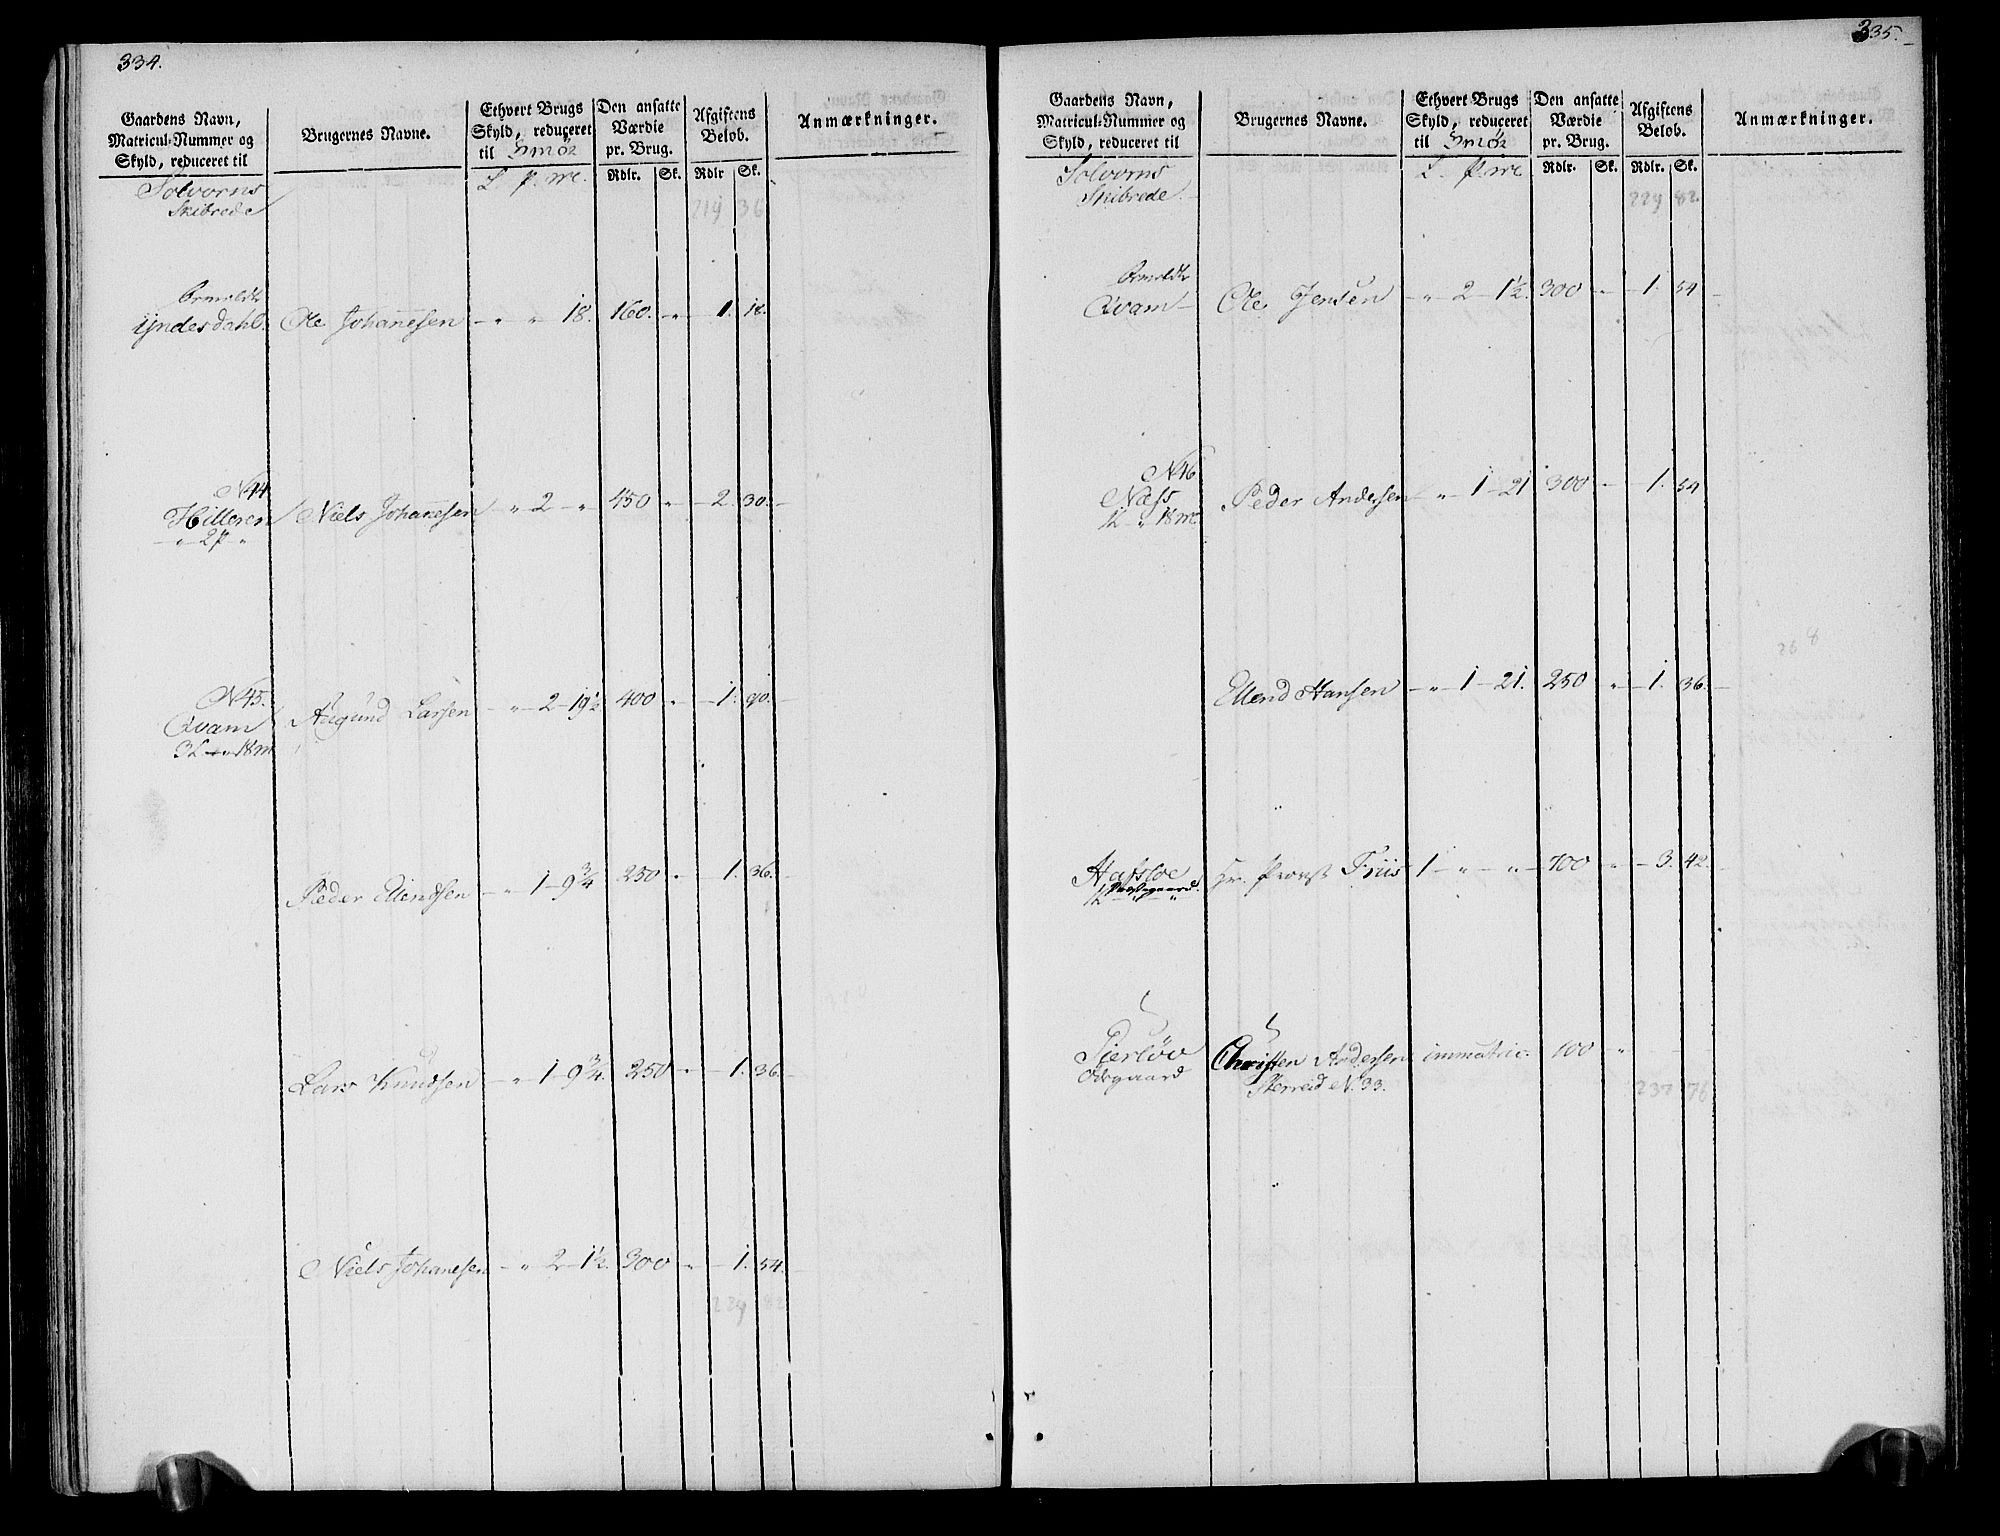 334.
Gaardens Navn,
Matricul-Nummer og
Skyld, reduceret til
Brugernes Navne.
Ethvert Brugs
Skyld, reduceret
til Smör
Den ansatte
Værdie
pr. Brug.
Afgiftens
Beløb.
Anmærkninger.
L p. mc.
Rdlr. Sk. Rdlr Sk.
Solvorns
Skibrede
219 36
Ormeldte
Yndesdahl. Ole Johanesen - " " 18. 160. " 1. 18.
N 44
Hilleren Niels Johanesen - " 2 - " 450 " 2. 30.
" 2 p "
N 45.
Qvam Augund Larsen - " 2 - 19½ 400 " 1. 90.
3 L " 18 m
Peder Ellendsen - " 1 - 9¾ 250 " 1. 36.
Lars Knudsen - " 1 - 9¾. 250 " 1. 36.
Niels Johanesen - " 2 - 1½. 300 " 1. 54.
229 82
335.
Gaardens Navn,
Matricul-Nummer og
Skyld, reduceret til
Brugernes Navne.
Ethvert Brugs
Skyld, reduceret
til Smör
Den ansatte
Værdie
pr. Brug.
Afgiftens
Beløb.
Anmærkninger.
L. p. mc
Rdlr. Sk. Rdlr. Sk.
Solvorns
Skibrede
229 82.
Ormeldte
Qvam Ole Jensen - " 2 - 1½. 300 " 1. 54
N 46
Næss Peder Andersen - " 1 - 21 300 " 1. 54
1 L " 18 mc
Ellend Hansen - " 1 - 21. 250 " 1. 36.
Hafsloe Hr. Provst Friis 1 - " - " 700 " 3. 42.
Præstegaard
1 L " "
Christen Andersen immatric: 100 "
Ødegaard
N. 33.
237 76